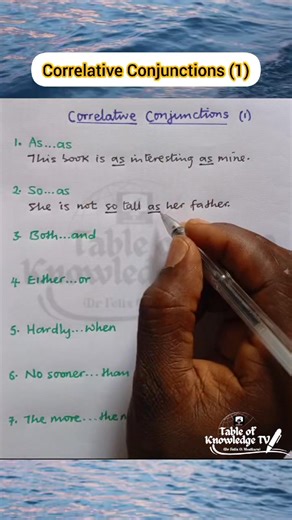 Correlative Conjunctions (1)
Correlative Conjunctions (1)
1. As...as
This book is as interesting as mine.
2. So...as
She is not so tall as her father.
3. Both...and
4. Either...or
5. Hardly...when
6. No sooner...than
7. The more...the
Table of
Knowledge TV
Table of
Knowledge TV